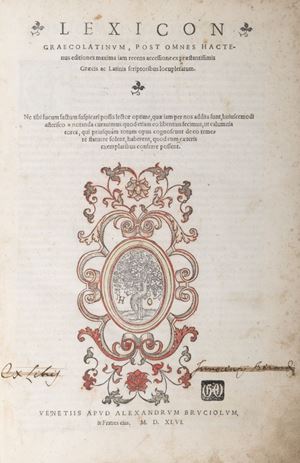 LEXICON
GRAECOLATINVM, POST OMNES HACTE-
nus editiones maxima iam recens accessione ex præstantissimis
Græcis ac Latinis scriptoribus locupletatum.
Ne tibi fucum factum suspicari possis lector optime, quæ iam per nos addita sunt, huiuscemodi
asterisco * notanda curauimus quod etiam eo libentius fecimus, ut calumnia
tores, qui priusquàm totum opus cognoscant de eo teme
rè statuere solent, haberent, quod cum cæteris
exemplaribus conferre possent.
H O
ex Libris
VENETIIS APVD ALEXANDRVM BRVCIOLVM,
& Fratres eius, M. D. XLVI.